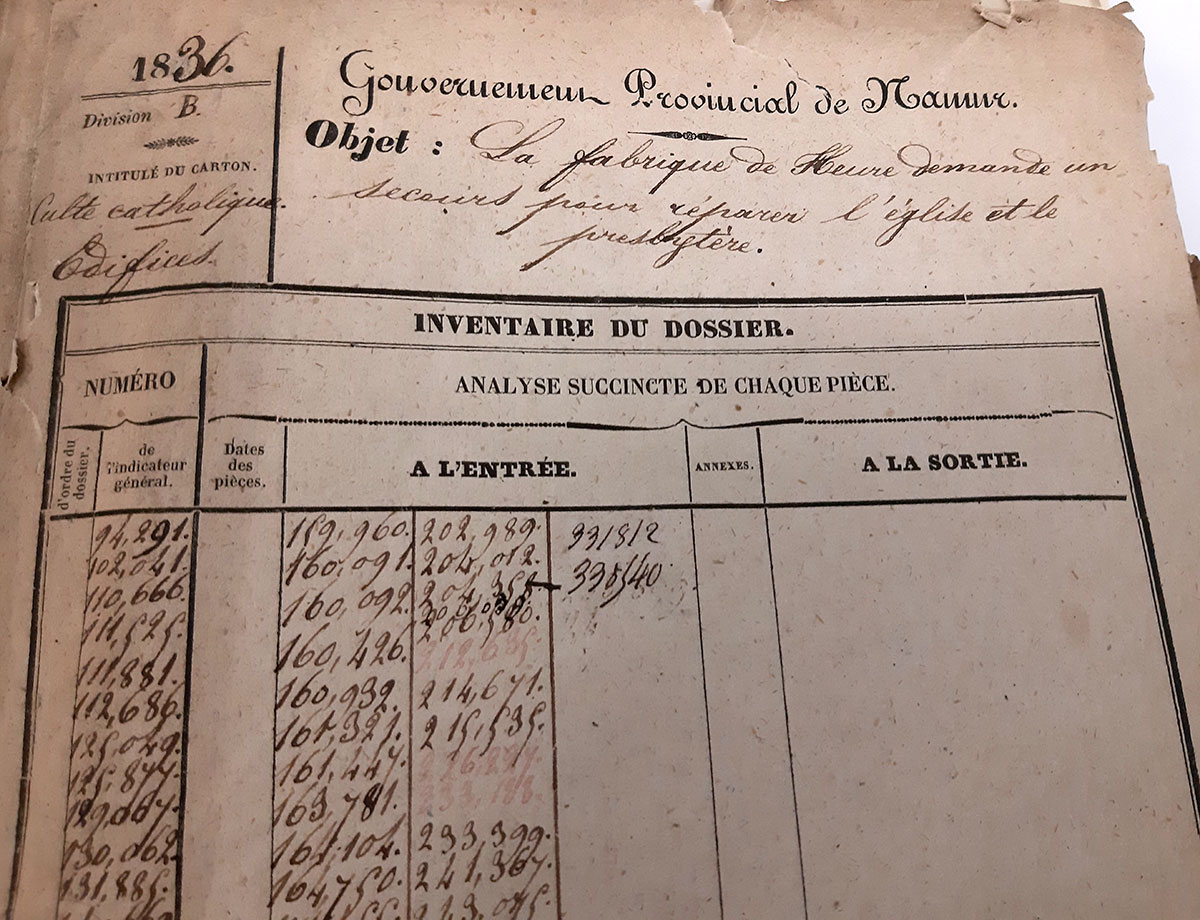 1836.
Division B.
INTITULÉ DU CARTON.
Culte catholique.
Édifices.
Gouvernement Provincial de Namur.
Objet : La fabrique de Heure demande un
secours pour réparer l'église et le
presbytère.
INVENTAIRE DU DOSSIER.
NUMÉRO
ANALYSE SUCCINCTE DE CHAQUE PIÈCE.
d'ordre du
dossier.
de
l'indicateur
général.
Dates
des
pièces.
A L'ENTRÉE.
ANNEXES.
A LA SORTIE.
94,291. 159,960. 202,989. 331812
102,041. 160,091. 204,012. 338540
110,666. 160,092. 204,358
111,525. 206,580.
111,881. 160,426. 212,635.
112,686. 160,932. 214,671.
125,049. 161,321. 215,535.
125,877. 161,447.
129,007. 163,781. 233,188.
130,062. 164,104. 233,399.
131,885. 164,750. 241,367.